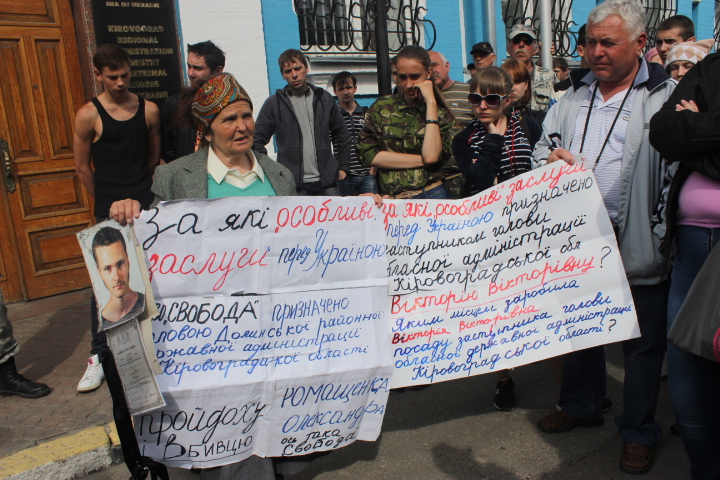 KIROVOGRAD
REGIONAL
За які „особливі"
заслуги перед Україною
„СВОБОДА" призначено
головою Долинської районної
державної адміністрації
Кіровоградської області
пройдоху
і вбивцю
Ромащенка
Олександра
ось така
Свобода
за які „особливі" заслуги
перед Україною призначено
заступником голови
обласної адміністрації
Кіровоградської обл
Вікторію Вікторівну?
Яким місцем заробила
Вікторія Вікторівна
посаду заступника голови
обласної державної адміністрації
Кіровоградської області?